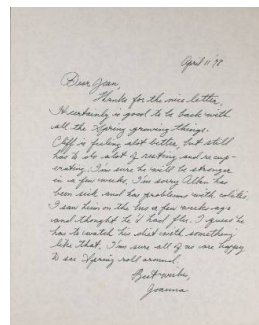 April 11 '78
Dear Jean,
Thanks for the nice letter,
It certainly is good to be back with
all the Spring growing things.
Cliff is feeling alot better, but still
has to do alot of resting and recup-
erating. I'm sure he will be stronger
in a few weeks. I'm sorry Allen has
been sick and has problems with colitis.
I saw him on the bus a few weeks ago
and thought he'd had flu. I guess he
has to watch his diet with something
like that. I'm sure all of us are happy
to see Spring roll around.
Best wishes,
Joanna